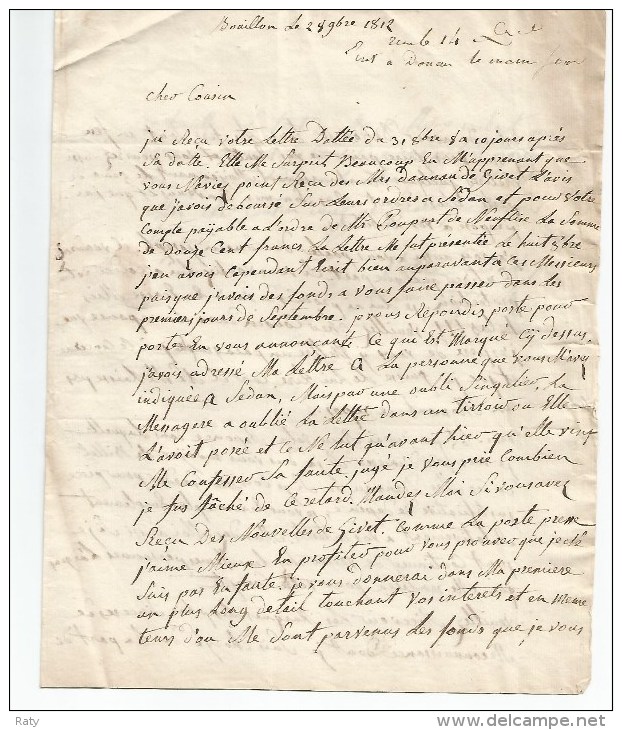 Bouillon Le 28 9bre 1812
Ecrit a Douan le meme jour
cher Cousin
j'ai Reçu votre Lettre Dattée du 31 8bre 8 a 10 jours après
Sa datte, Elle Me Surprit Beaucoup En M'apprenant que
vous N'aviés point Reçu des Mrs dannau de Givet L'avis
que j'avois deboursé Sur Leurs ordres a Sedan et pour votre
Compte paijable a L'ordre de Mr Poupart de Neuflise La Somme
de Douze Cent francs, La Lettre Me fut présentée ce huit 8bre
j'en avois Cependant Ecrit bien auparavant a ces Messieurs
puisque j'avois des fonds a vous faire passer dans Les
premiers jours de Septembre. je vous Repondis poste pour
poste En vous annonçant Ce qui Est Marqué Cy dessus.
j'avois adressé Ma Lettre a La personne que vous M'avés
indiquée a Sedan, Mais par une oubli Singulier, La
Messagere a oublié La Lettre dans un tirroir ou Elle
L'avoit posée et Ce Ne fut qu'avant hier qu'elle vint
Me Confesser Sa faute jugé je vous prie Combien
je fus fâché de Ce retard. Mandes Moi Si vous avez
Reçu Des Nouvelles de Givet. Comme La poste presse
j'aime Mieux En profiter pour vous prouver que je Ne
Suis pas En faute. je vous donnerai dans Ma premiere
un plus Long detail touchant vos interets et en meme
tems d'ou Me Sont parvenus Les fonds que je vous
Raty
www.delcampe.net